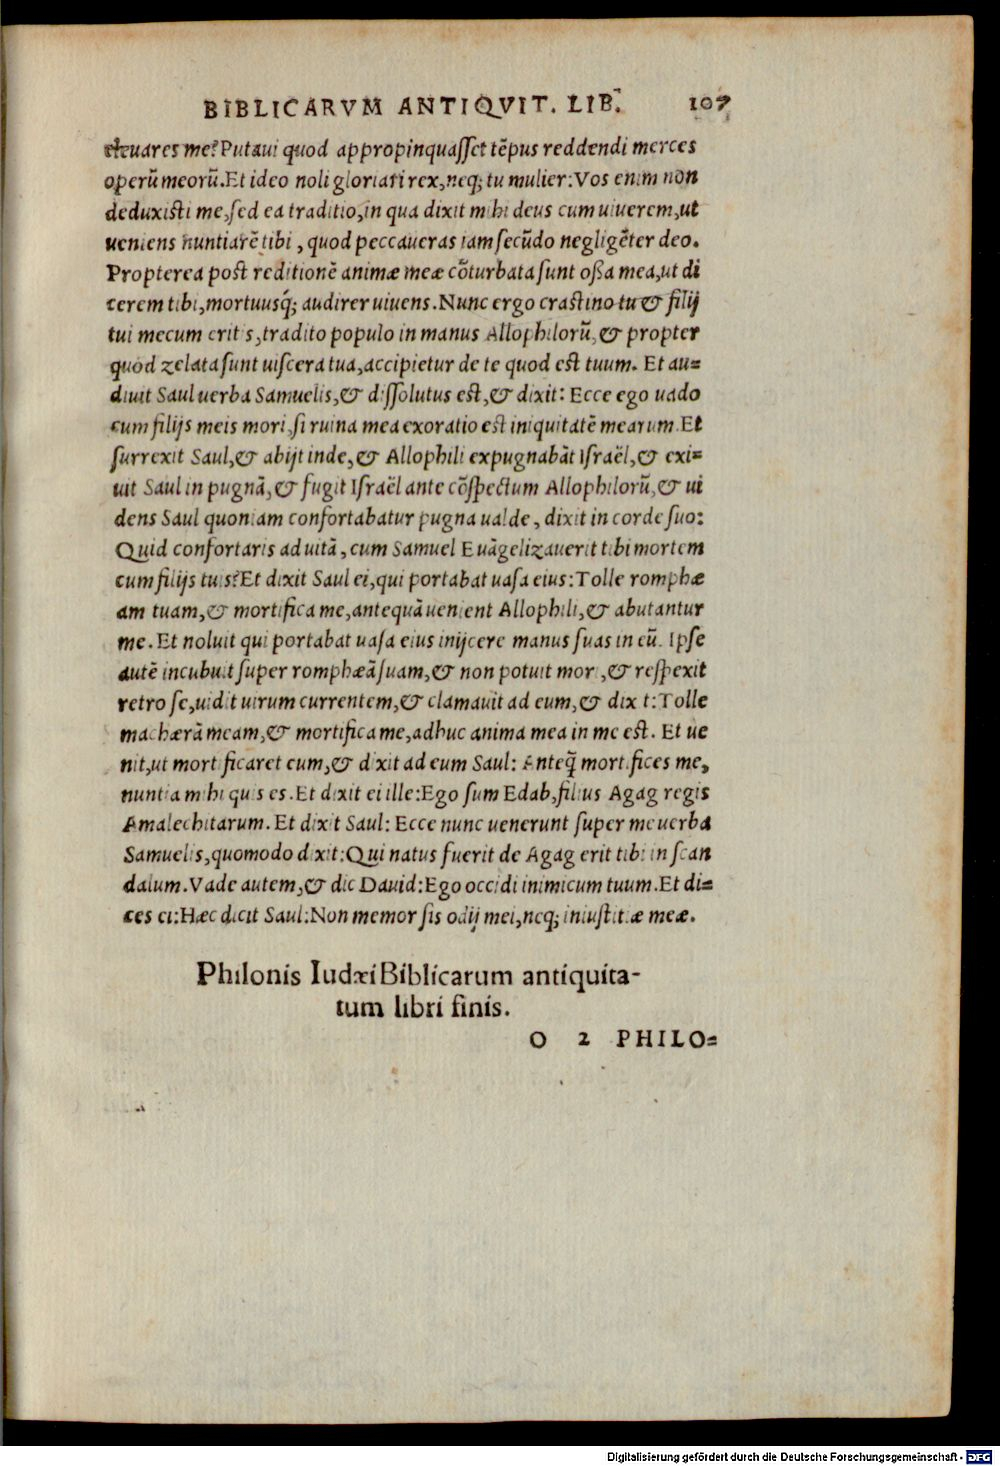 BIBLICARVM ANTIQVIT. LIB. 107
eleuares me? Putaui quod appropinquasset tẽpus reddendi merces
operũ meorũ. Et ideo noli gloriari rex, neq; tu mulier: Vos enim non
deduxisti me, sed ea traditio, in qua dixit mihi deus cum uiuerem, ut
ueniens nuntiarẽ tibi, quod peccaueras iam secũdo negligẽter deo.
Propterea post reditionẽ animæ meæ cõturbata sunt ossa mea, ut di
cerem tibi, mortuusq́; audirer uiuens. Nunc ergo crastino tu & filij
tui mecum eritis, tradito populo in manus Allophilorũ, & propter
quod zelata sunt uiscera tua, accipietur de te quod est tuum. Et au=
diuit Saul uerba Samuelis, & dissolutus est, & dixit: Ecce ego uado
cum filijs meis mori, si ruina mea exoratio est iniquitatẽ mearum. Et
surrexit Saul, & abijt inde, & Allophili expugnabãt Israël, & exi=
uit Saul in pugnã, & fugit Israël ante cõspectum Allophilorũ, & ui
dens Saul quoniam confortabatur pugna ualde, dixit in corde suo:
Quid confortaris ad uitã, cum Samuel Euãgelizauerit tibi mortem
cum filijs tuis? Et dixit Saul ei, qui portabat uasa eius: Tolle romphæ
am tuam, & mortifica me, antequã uenient Allophili, & abutantur
me. Et noluit qui portabat uasa eius inijcere manus suas in eũ. Ipse
autẽ incubuit super romphæã suam, & non potuit mori, & respexit
retro se, uidit uirum currentem, & clamauit ad eum, & dixit: Tolle
machærã meam, & mortifica me, adhuc anima mea in me est. Et ue
nit, ut mortificaret eum, & dixit ad eum Saul: Anteq̃ mortifices me,
nuntia mihi quis es. Et dixit ei ille: Ego sum Edab, filius Agag regis
Amalechitarum. Et dixit Saul: Ecce nunc uenerunt super me uerba
Samuelis, quomodo dixit: Qui natus fuerit de Agag erit tibi in scan
dalum. Vade autem, & dic Dauid: Ego occidi inimicum tuum. Et di=
ces ei: Hæc dicit Saul: Non memor sis odij mei, neq; iniustitiæ meæ.
Philonis Iudæi Biblicarum antiquita-
tum libri finis.
O 2 PHILO=
Digitalisierung gefördert durch die Deutsche Forschungsgemeinschaft - DFG